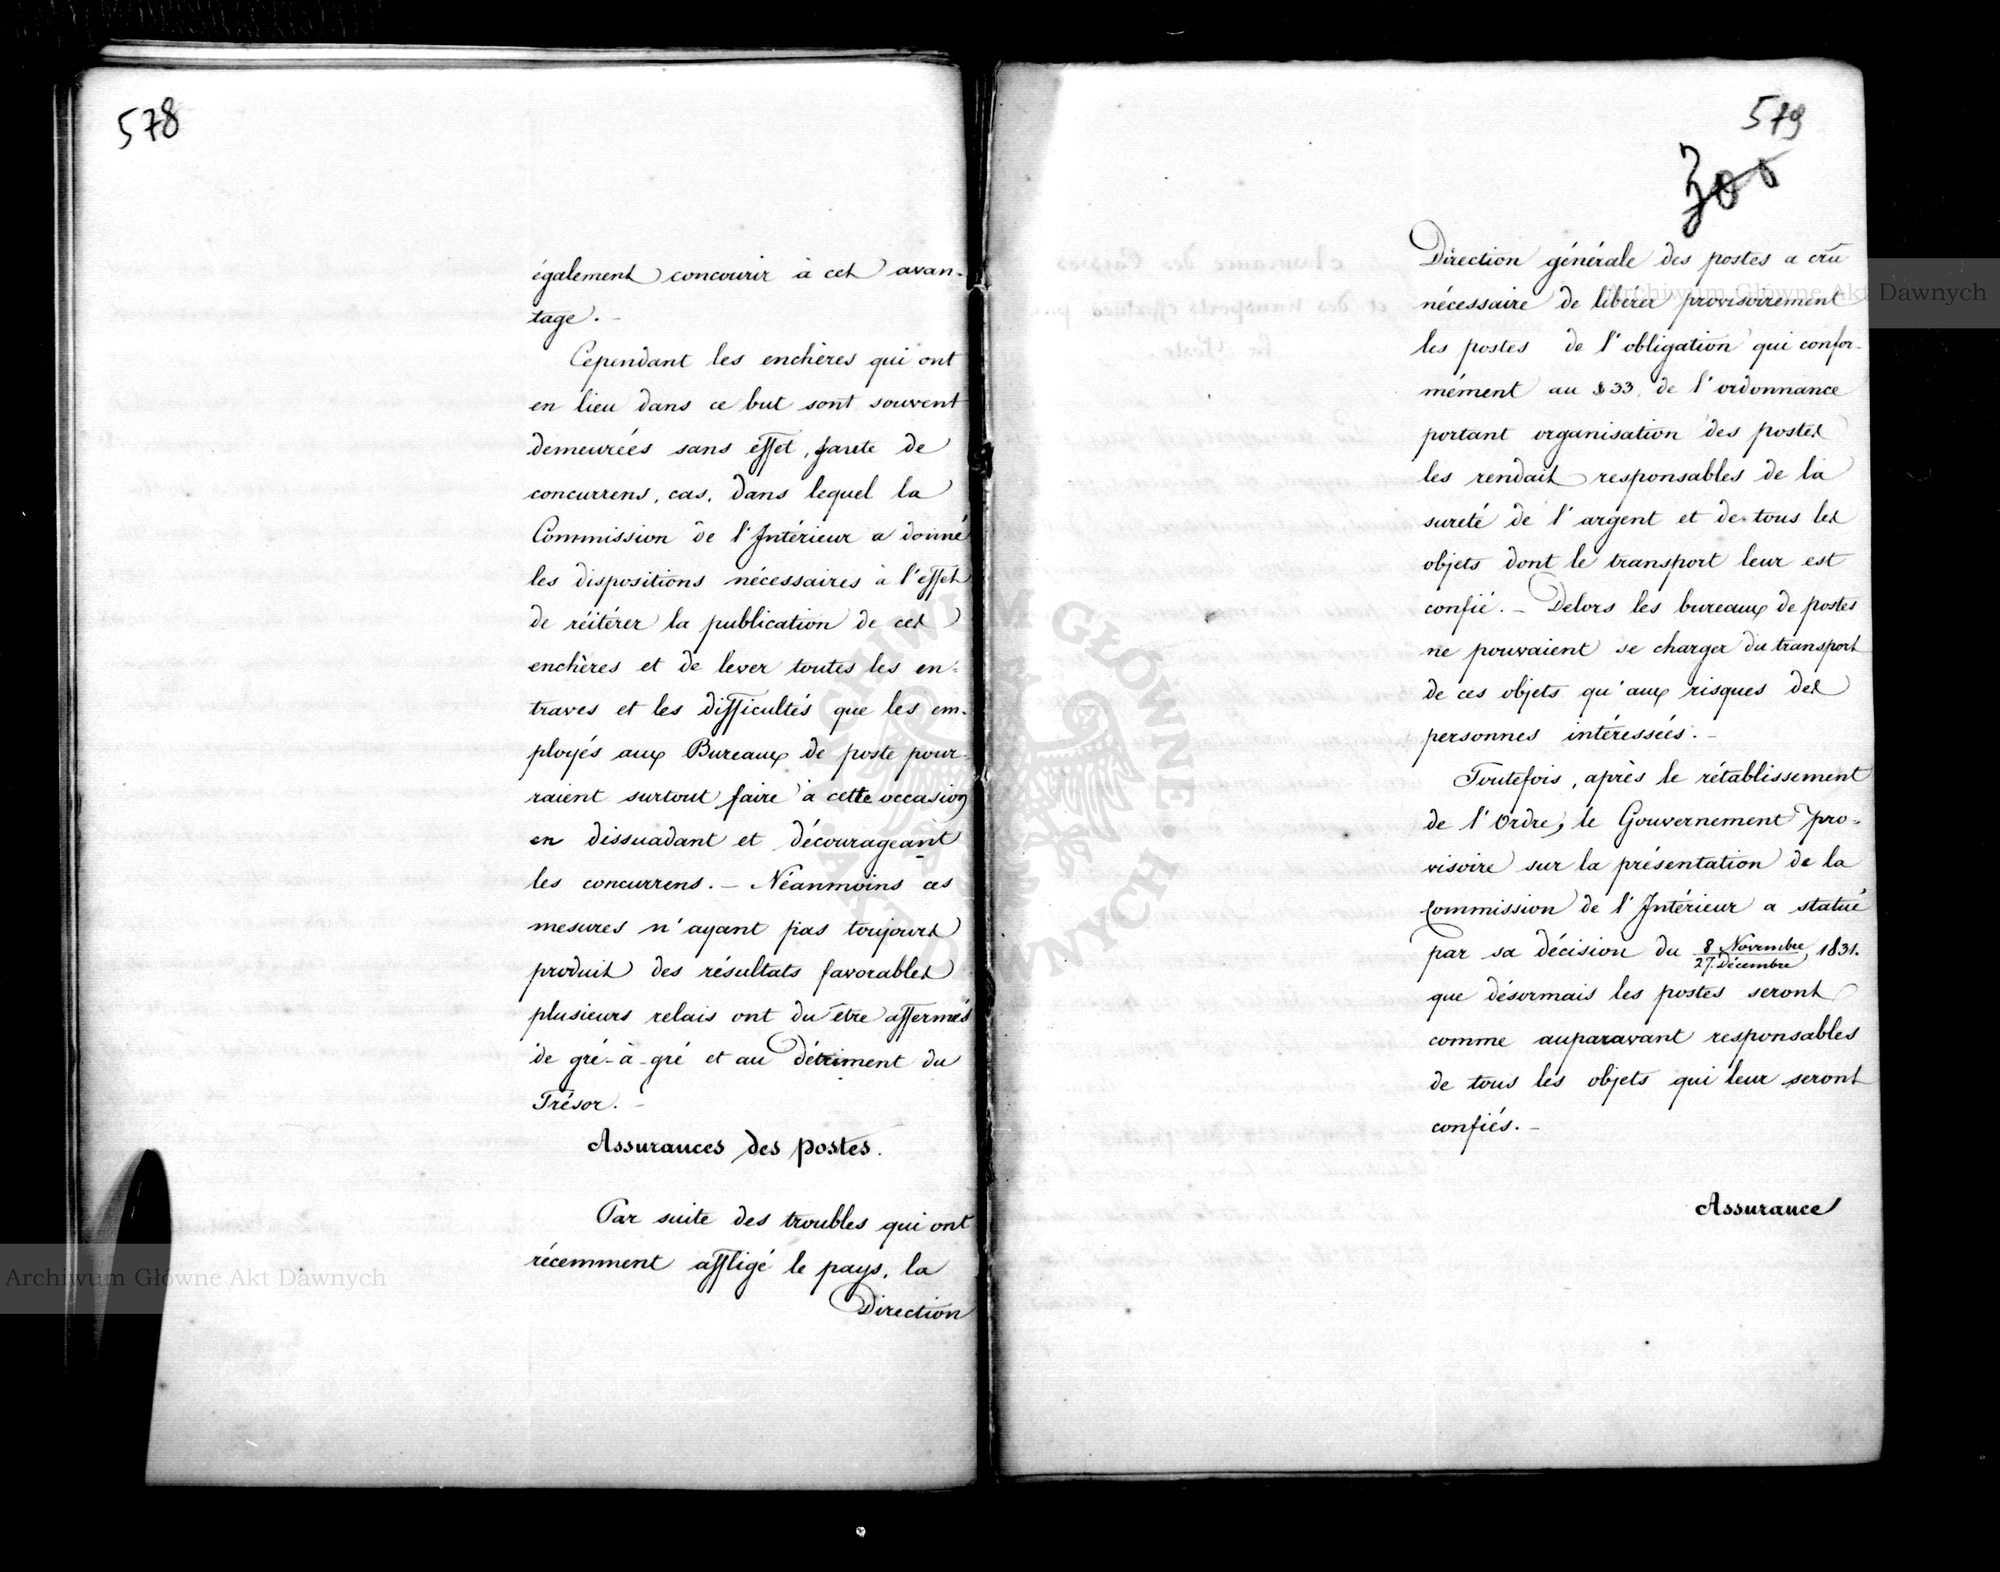 578
également concourir à cet avan-
tage. -
Cependant les enchères qui ont
en lieu dans ce but sont souvent
demeurées sans effet, faute de
concurrens, cas, dans lequel la
Commission de l'Intérieur a donné
les dispositions nécessaires à l'effet
de réitérer la publication de ces
enchères et de lever toutes les en-
traves et les difficultés que les em-
ployés aux Bureaux de poste pour-
raient surtout faire à cette occasion
en dissuadant et décourageant
les concurrens. - Néanmoins ces
mesures n'ayant pas toujours
produit des résultats favorables
plusieurs relais ont du être affermés
de gré-à-gré et au détriment du
Trésor. -
Assurances des postes.
Par suite des troubles qui ont
récemment affligé le pays, la
Direction
579
300
Direction générale des postes a crû
nécessaire de libérer provisoirement
les postes de l'obligation qui confor-
mément au § 33. de l'ordonnance
portant organisation des postes
les rendait responsables de la
sureté de l'argent et de tous les
objets dont le transport leur est
confié. - Delors les bureaux de postes
ne pouvaient se charger du transport
de ces objets qu'aux risques des
personnes intéressées. -
Toutefois, après le rétablissement
de l'Ordre, le Gouvernement pro-
visoire sur la présentation de la
Commission de l'Intérieur a statué
par sa décision du 8 Novembre / 27. Décembre, 1831.
que désormais les postes seront
comme auparavant responsables
de tous les objets qui leur seront
confiés. -
Assurance
Archiwum Główne Akt Dawnych
Archiwum Główne Akt Dawnych
ARCHIWUM GŁÓWNE AKT DAWNYCH